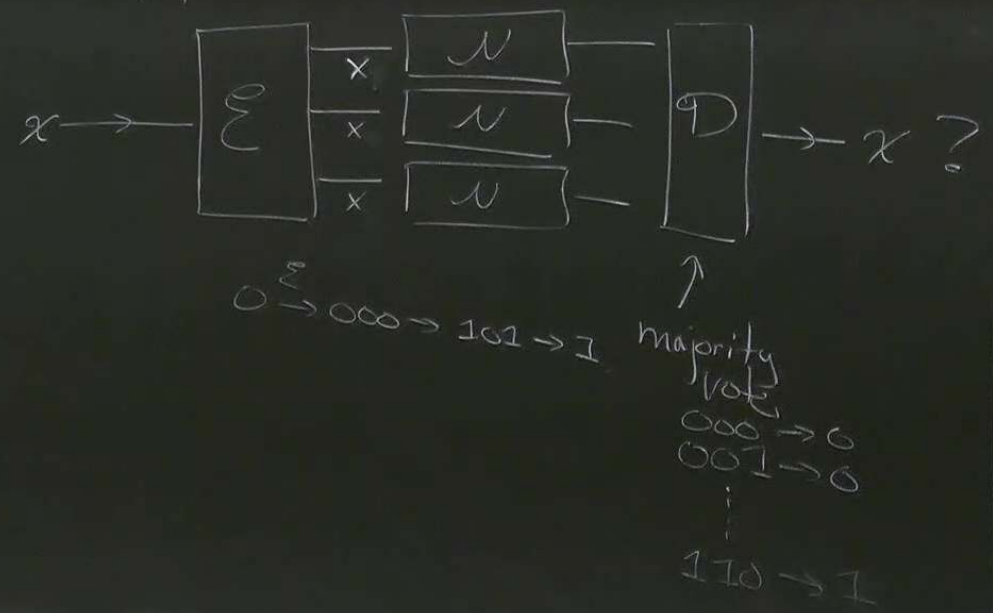 x → ℰ x N D → x ?
x N
x N
ℰ
0 → 000 → 101 → 1
majority
vote
000 → 0
001 → 0
⋮
110 → 1